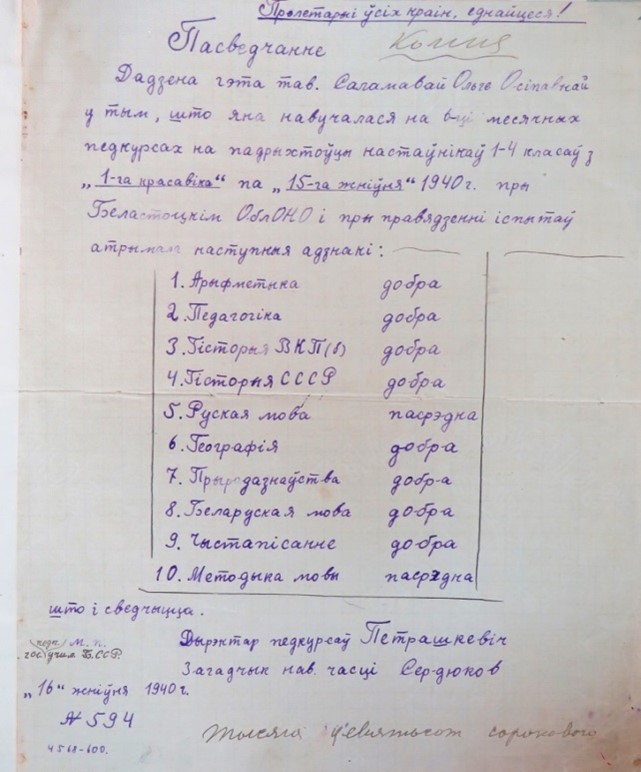 Пролетарыі ўсіх краін, еднайцеся!
Пасведчанне Копия
Дадзена гэта тав. Сагамавай Ольге Осіпаўнай
у тым, што яна навучалася на 6-ці месячных
педкурсах на падрыхтоўцы настаўнікаў 1-4 класаў з
„1-га красавіка“ па „15-га жніўня“ 1940 г. пры
Беластоцкім ОблОНО і пры правядзенні іспытаў
атрымала наступныя адзнакі:
1. Арыфметыка добра
2. Педагогіка добра
3. Гісторыя ВКП(б) добра
4. Гісторыя СССР добра
5. Руская мова пасрэдна
6. Географія добра
7. Прыродазнаўства добра
8. Беларуская мова добра
9. Чыстапісанне добра
10. Методыка мовы пасрэдна
што і сведчыцца.
Дырэктар педкурсаў Петрашкевіч
М. п.
Б.ССР.
Загадчык нав. часці Сердюков
„16“ жніўня 1940 г.
№ 594
тысяча девятьсот сорокового
4568-600.